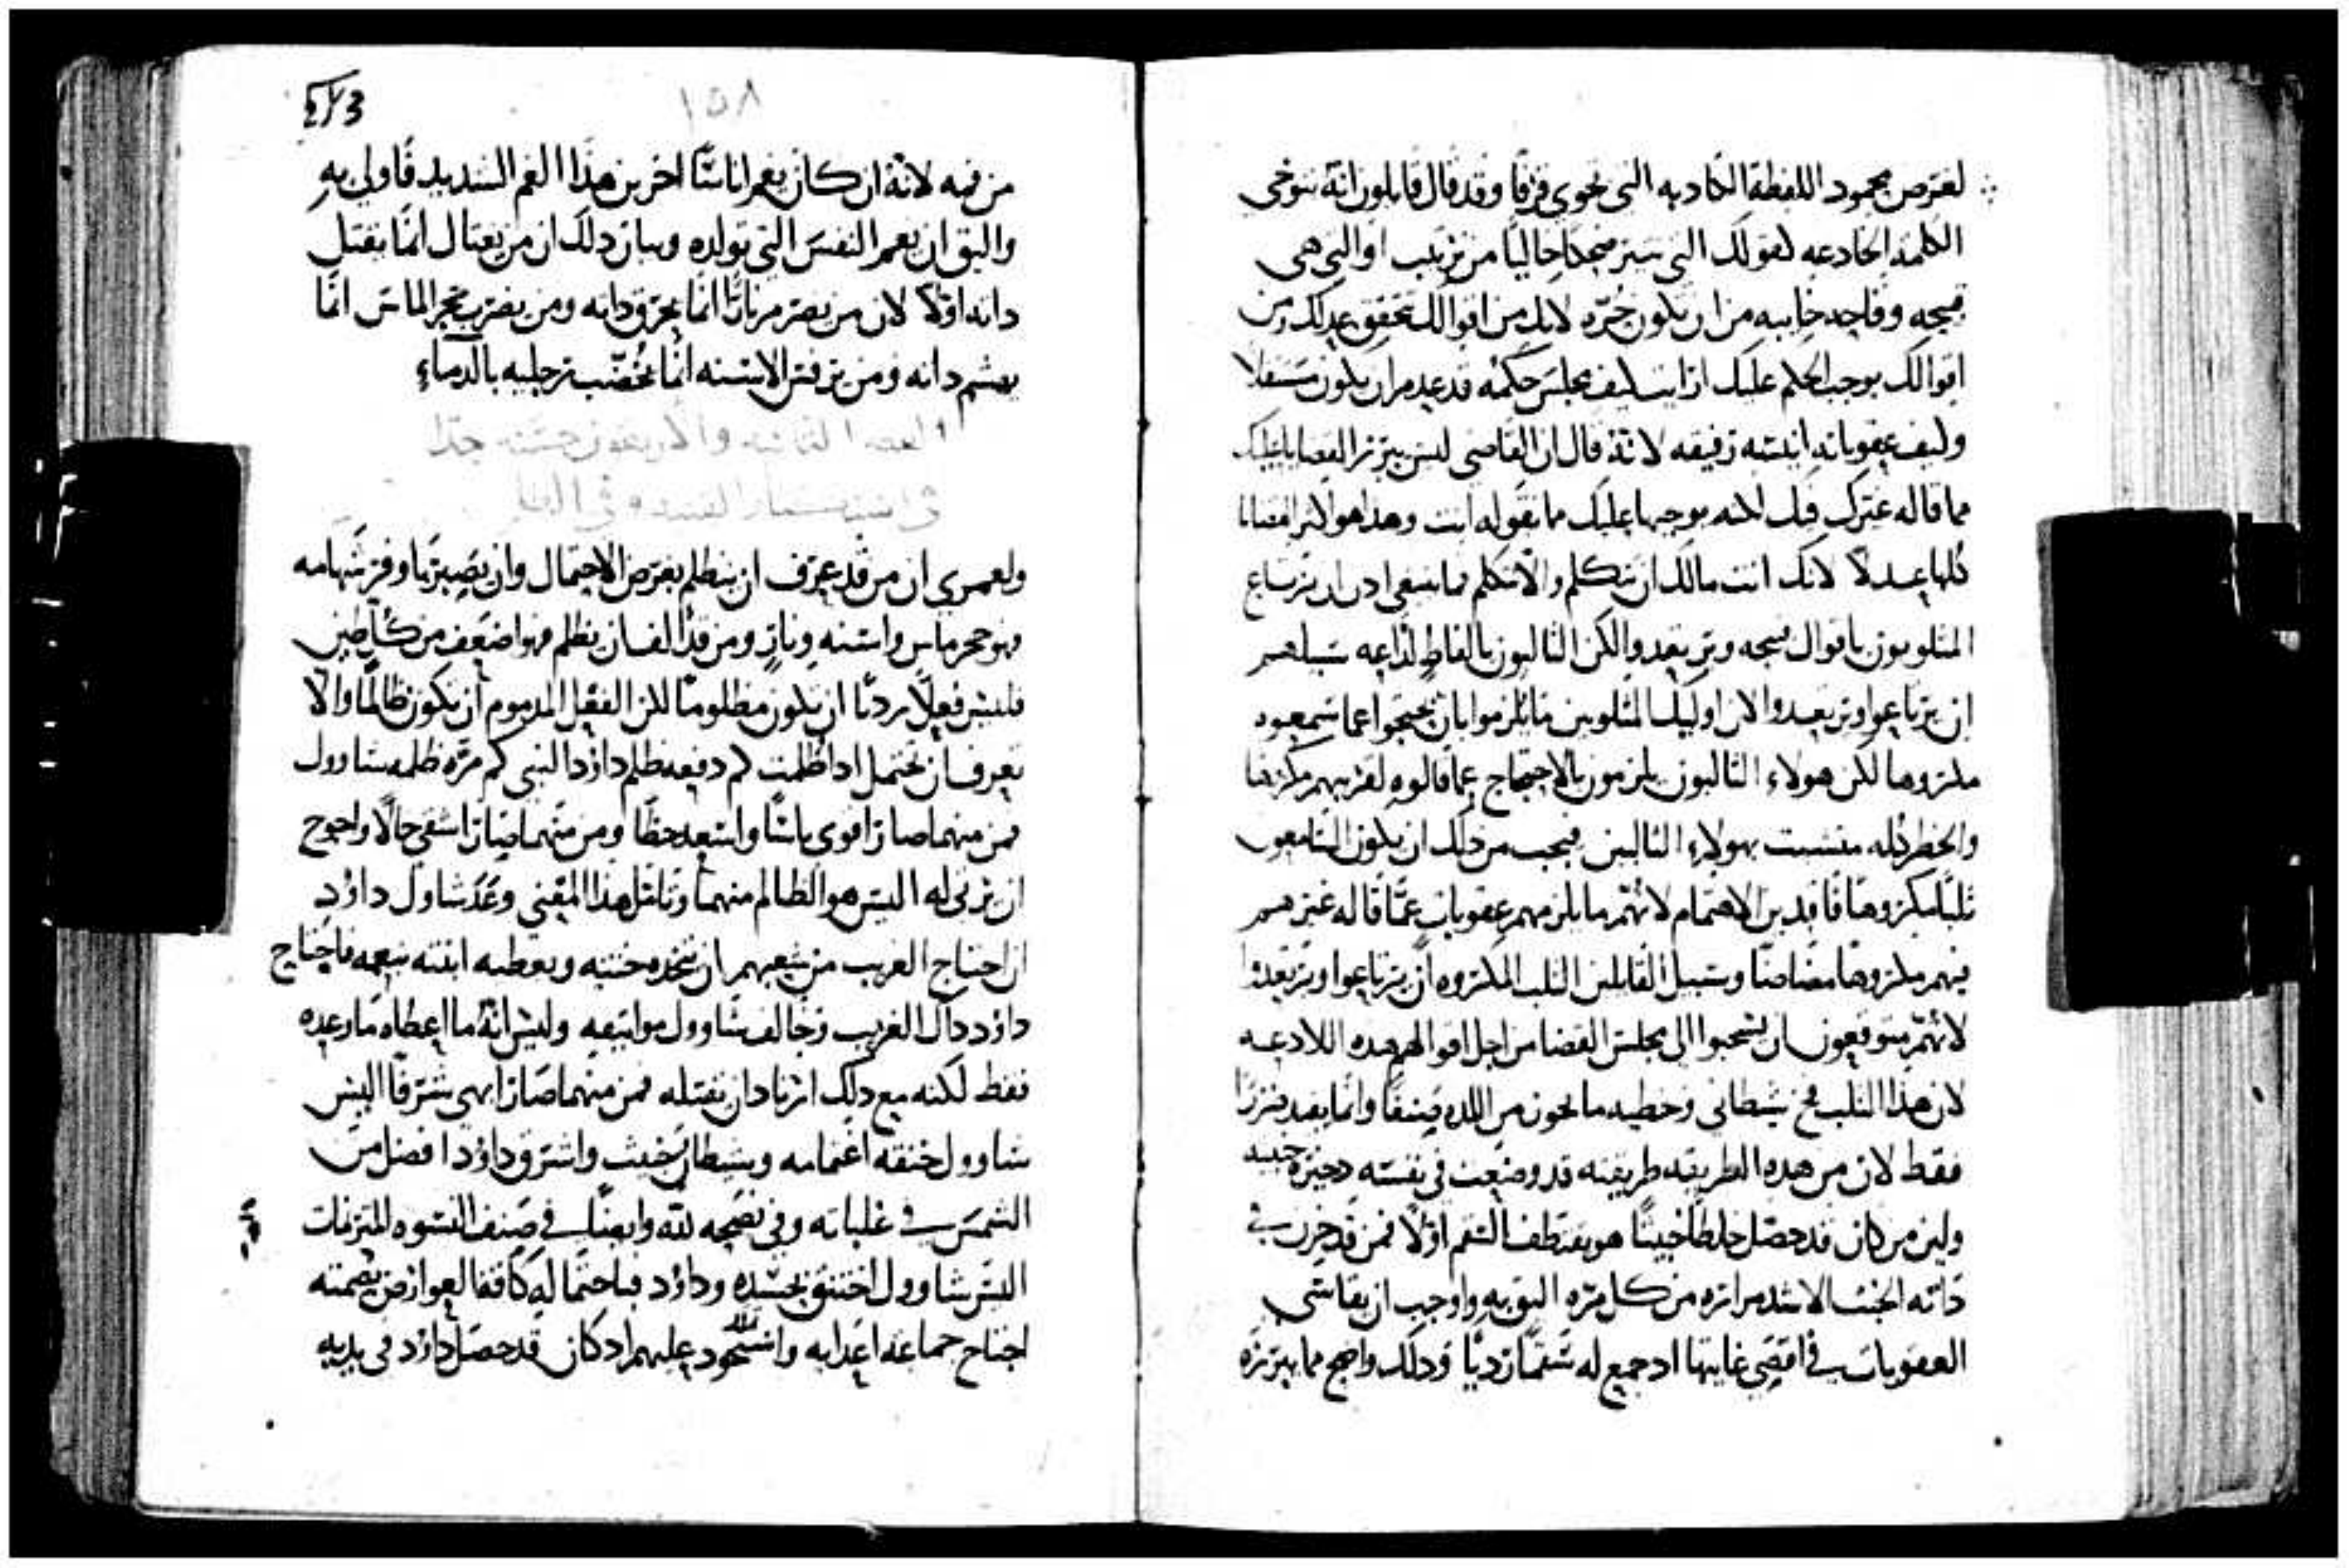 لغرض مجمود اللفظة الكاذبه التي تحوي قرفًا وقد قال قايلون انه ينوخى
الكلمه الخادعه لقولك التي تبين ضحكا خاليًا من ترتيب او التي هي
قبيحه وقاحه خايبه من ان يكون حره لانك من اقوالك تحقق عدلك ومن
اقوالك يوجب الحكم عليك ارايت كيف مجلس حكمه قد عدم ان يكون مستقلا
وكيف عقوباته انيسه رفيقه لانه قال ان القاضي ليس يبرز القضايا عليك
مما قاله غيرك فيك لكنه يوجبها عليك مما تقوله انت وهذا هو اكثر القضايا
كلها عدلاً لانك انت مالك ان تتكلم والا تتكلم فما ينبغي اذن ان يرتاع
المثلوبون باقوال قبيحه ويرتعدوا لكن الثالبون بالفاظ لذاعه سبيلهم
ان يرتاعوا ويرتعدوا لان اوليك المثلوبين ما يلزموا بان يحتجوا عما سمعوه
مكروها لكن هولاء الثالبون يلزمون بالاحتجاج عما قالوه لقريبهم مكروها
والخطر كله متشبث بهولاء الثالبين فيجب من ذلك ان يكون السامعون
ثلبًا مكروهًا فاقدين الاهتمام لانهم ما يلزمهم عقوبات عمّا قاله غيرهم
فيهم مكروهًا مضاضًا وسبيل القايلين الثلب المكروه ان يرتاعوا ويرتعدوا
لانهم متوقعون ان يسحبوا الى مجلس القضا من اجل اقوالهم هذه اللاذعه
لان هذا الثلب فخ شيطاني وخطيه ما تحوز من اللذه صنفًا وانما يفيد ضررًا
فقط لان من هذه الطريقه طريقته قد وضعت في نفسه ذخيره خبيثه
ولين من كان قد حصل خلطًا خبيثًا هو يقتطف السقم اولاً فمن قد خزن في
ذاته الخبث الاشد مراره من كل مره اليق به واوجب ان يقاسي
العقوبات في اقصى غايتها اذ جمع له سقمًا رديًا وذلك واضح مما يبرزه
١٥٨
من فيه لانه ان كان يغم اناسًا اخرين هذا الغم الشديد فاولى به
واليق ان يغم النفس التي تولده وبيان ذلك ان من يغتال انما يقتل
ذاته اولاً لان من يضرم نارًا انما يحرق ذاته ومن يضرب حجر الماس انما
يهشم ذاته ومن يرفس الاسنه انما يخضب رجليه بالدماء
العظه الثانيه والاربعون حسنه جدًا
ولعمري ان من قد عرف ان ينظلم بغرض الاحتمال وان يصبر بأوفر شهامه
فهو حجر ماس واسنه ونار ومن قد الف ان يظلم فهو اضعف من كل طين
فليس فعلاً رديًا ان يكون مظلومًا لكن الفعل المذموم ان تكون ظالمًا والا
تعرف ان تحتمل اذا ظلمت كم دفعه ظلم داود النبي كم مره ظلمه شاوول
فمن منهما صار اقوى باسًا واسعد حظًا ومن منهما صار اشقى حالاً واحوج
ان يرثى له اليس هو الظالم منهما وتامل هذا المعنى وعد شاول داود
ان اجتاح الغريب من شعبهم ان يتخذه ختنه ويعطيه ابنته بنعمه فاجتاح
داود ذاك الغريب وخالف شاوول مواثيقه وليس انه ما اعطاه ما وعده
فقط لكنه مع ذلك اراد ان يقتله فمن منهما صار ابهى شرفًا اليس
شاوول خنقه اغتمامه وشيطان خبيث واشرق داود افضل من
الشمس في غلباته وفي نصحه لله وايضًا في صنف النسوه المترنمات
اليس شاوول اختنق بحسده وداود باحتماله كافة العوارض بصمته
اجتاح جماعة اعدايه واستحوذ عليهم اذ كان قد حصل داود في يديه